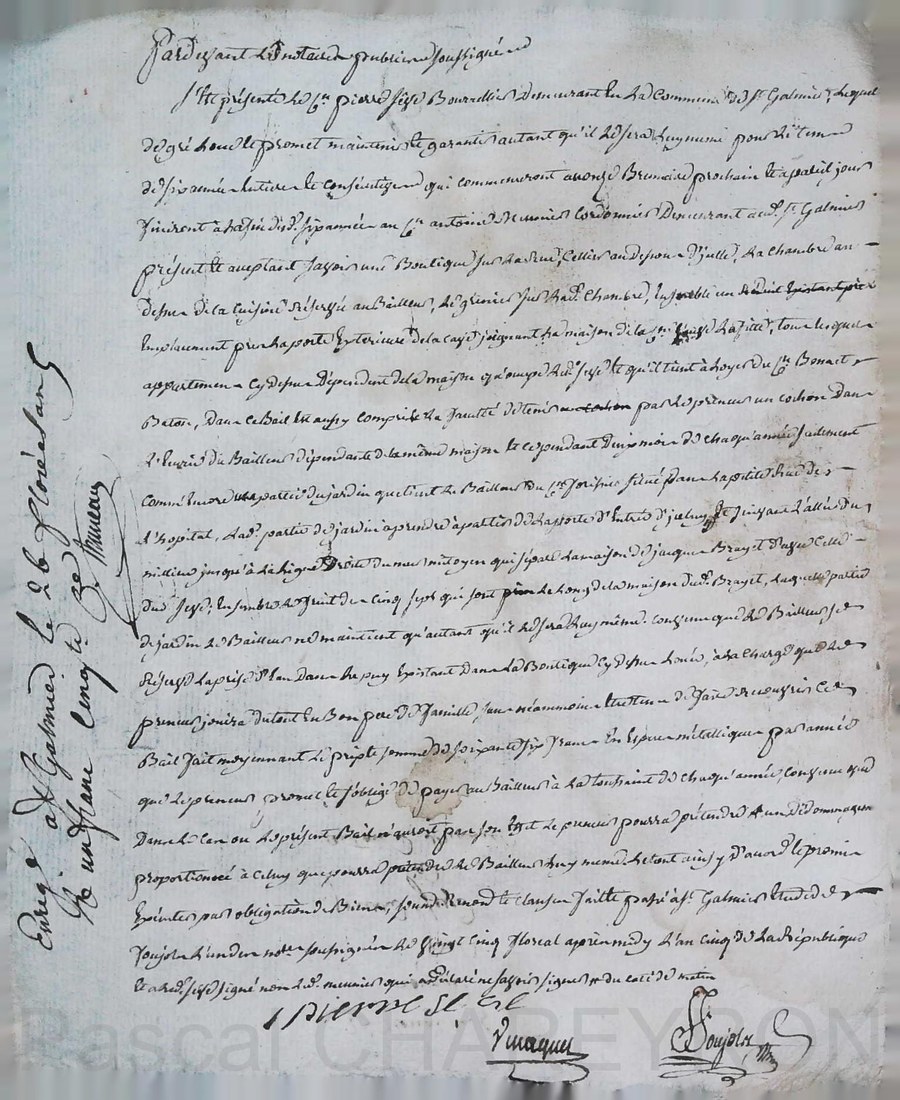 Pardevant Les notaires publics soussignés
S'est présenté Le Cn pierre seyve Bourrellier demeurant En La Commune de St Galmier, Lequel
de gré Loue et promet maintenir et garantir autant qu'il Le sera Luy même pour Le tems
de six années Entieres et Consécutives qui commenceront au onze Brumaire prochain et a pareil jour
finiront à La fin desd. six années au Cn antoine meunier Cordonnier Demeurant aud. St Galmier
présent et acceptant savoir une Boutique sur La Rue, Cellier au dessous d'icelle, La Chambre au
dessus de la Cuisine Réservée au Bailleur, Le grenier sur Lad. Chambre, Ensemble un
Emplacement près La porte Exterieure de la cave joignant La maison de la Ce Lafitte, tous lesquels
appartemens Cy dessus Dépendent de la maison qu'occupe Led. seyve et qu'il tient à Loyer du Cn Bonnet
Baton, Dans ce Bail Est aussy comprise La faculté de tenir par Le preneur un cochon Dans
L'Ecurie du Bailleur dépendante de la même maison et ce pendant Deux mois de chaque année seulement
Comm'Encore une partie du jardin que tient Le Bailleur du Cn situé Dans La petite Rue de
L'hopital, Lad. partie de jardin à prendre à partir de La porte d'Entrée d'iceluy et suivant L'allée du
millieu jusqu'à La Ligne Droite du mur mitoyen qui sépare La maison de jacques Brayet d'avec Celle
dud. seyve. Ensemble Le fruit des Cinq seps qui sont Le Long de la maison dud. Brayet, Laquelle partie
de jardin Le Bailleur ne maintient qu'autant qu'il Le sera Luy même. Convenu que Le Bailleur se
Réserve La prise d'Eau Dans Le puy Existant Dans La Boutique Cy dessus Louée, à La Charge que Le
preneur jouira du tout En Bon pere de famille,
Bail fait moyennant Le prix et somme de soixante six francs En Espece métallique par année
que Le preneur promet et s'oblige de payer au Bailleur à La toussaint de chaque année, Convenu que
Dans Le Cas où Le présent Bail n'auroit pas son Effet Le preneur pourra prétendre à un dédommagement
proportionné à Celuy que pourra prétendre Le Bailleur Luy même. Le tout ainsy d'acord et promis
Exécuter par obligation de Biens, soumissions et clauses faitte et passé à St Galmier Etude de
Soujola L'un des notres soussignés Le Vingt Cinq floreal après midy L'an Cinq de La République
et a Led. seyve signé non Led. meunier qui a Déclaré ne savoir signer du coté de matin
PIERRE SEVE
Vinaguet
Soujola
Enregé à St Galmier le 26 floréal an 5
Rc un franc Cinq te
Pascal CHAREYRON